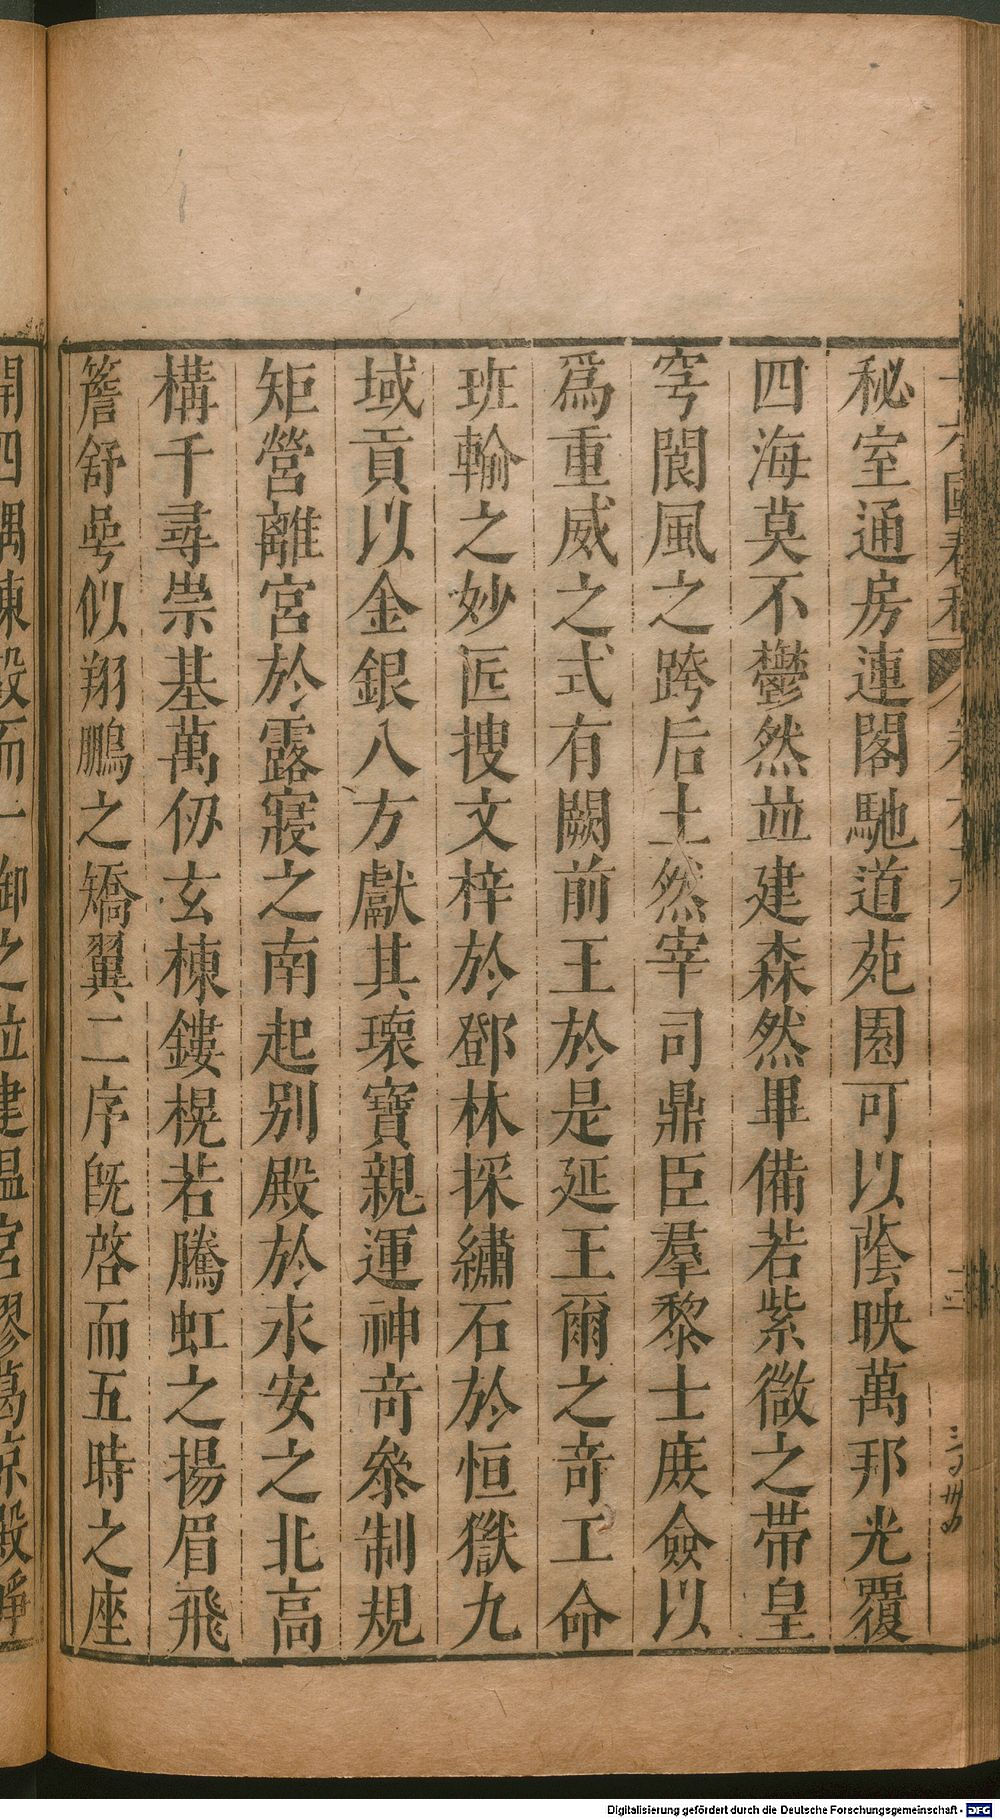 秘室通房連閣馳道苑園可以蔭映萬邦光覆
四海莫不鬱然並建森然畢備若紫微之帶皇
穹閬風之跨后土然宰司鼎臣羣黎士庶僉以
爲重威之式有闕前王於是延王爾之竒工命
班輸之妙匠搜文梓於鄧林採繡石於恒嶽九
域貢以金銀八方獻其瓌寶親運神竒叅制規
矩營離宮於露寢之南起別殿於永安之北高
構千尋崇基萬仞玄棟鏤榥若騰虹之揚眉飛
簷舒咢似翔鵬之矯翼二序旣啓而五時之座
開四隅陳設而一御之位建溫宮膠葛凉殿崢
Digitalisierung gefördert durch die Deutsche Forschungsgemeinschaft - DFG